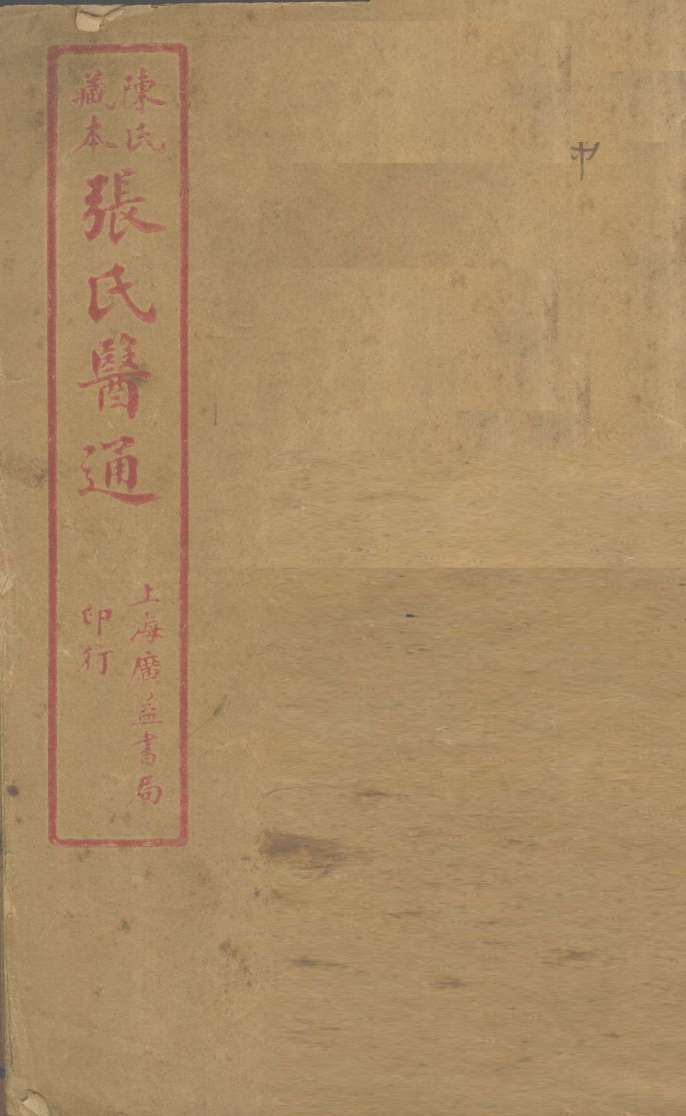 陳氏
藏本
張氏醫通
上海廣益書局
印行